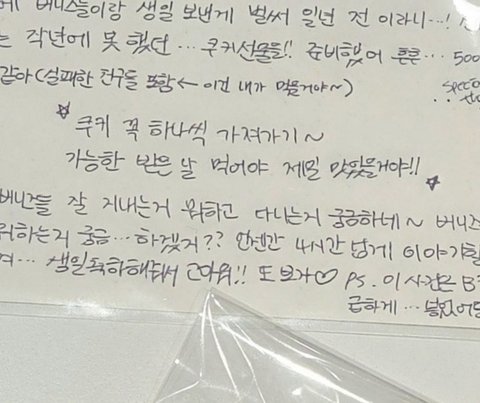 베니즈들이랑 생일 보낸게 벌써 일년 전 이라니…!
는 작년에 못 했던 … 쿠키선물들!! 준비했어 흐흐… 500
같아 (실패한 친구들 포함 ← 이건 내가 먹을거야~)
쿠키 꼭 하나씩 가져가기 ~
가능한 받은 날 먹어야 제일 맛있을거야!!
베니즈들 잘 지내는거 뭐하고 다니는거 궁금하네 ~ 베니즈
뭐하는거 궁금… 하겠지?? 언젠간 4시간 넘게 이야기할
겨… 생일축하해줘서 고마워!! 또 보자♡ PS. 이 사진은 B컷
급하게 … 넣었어